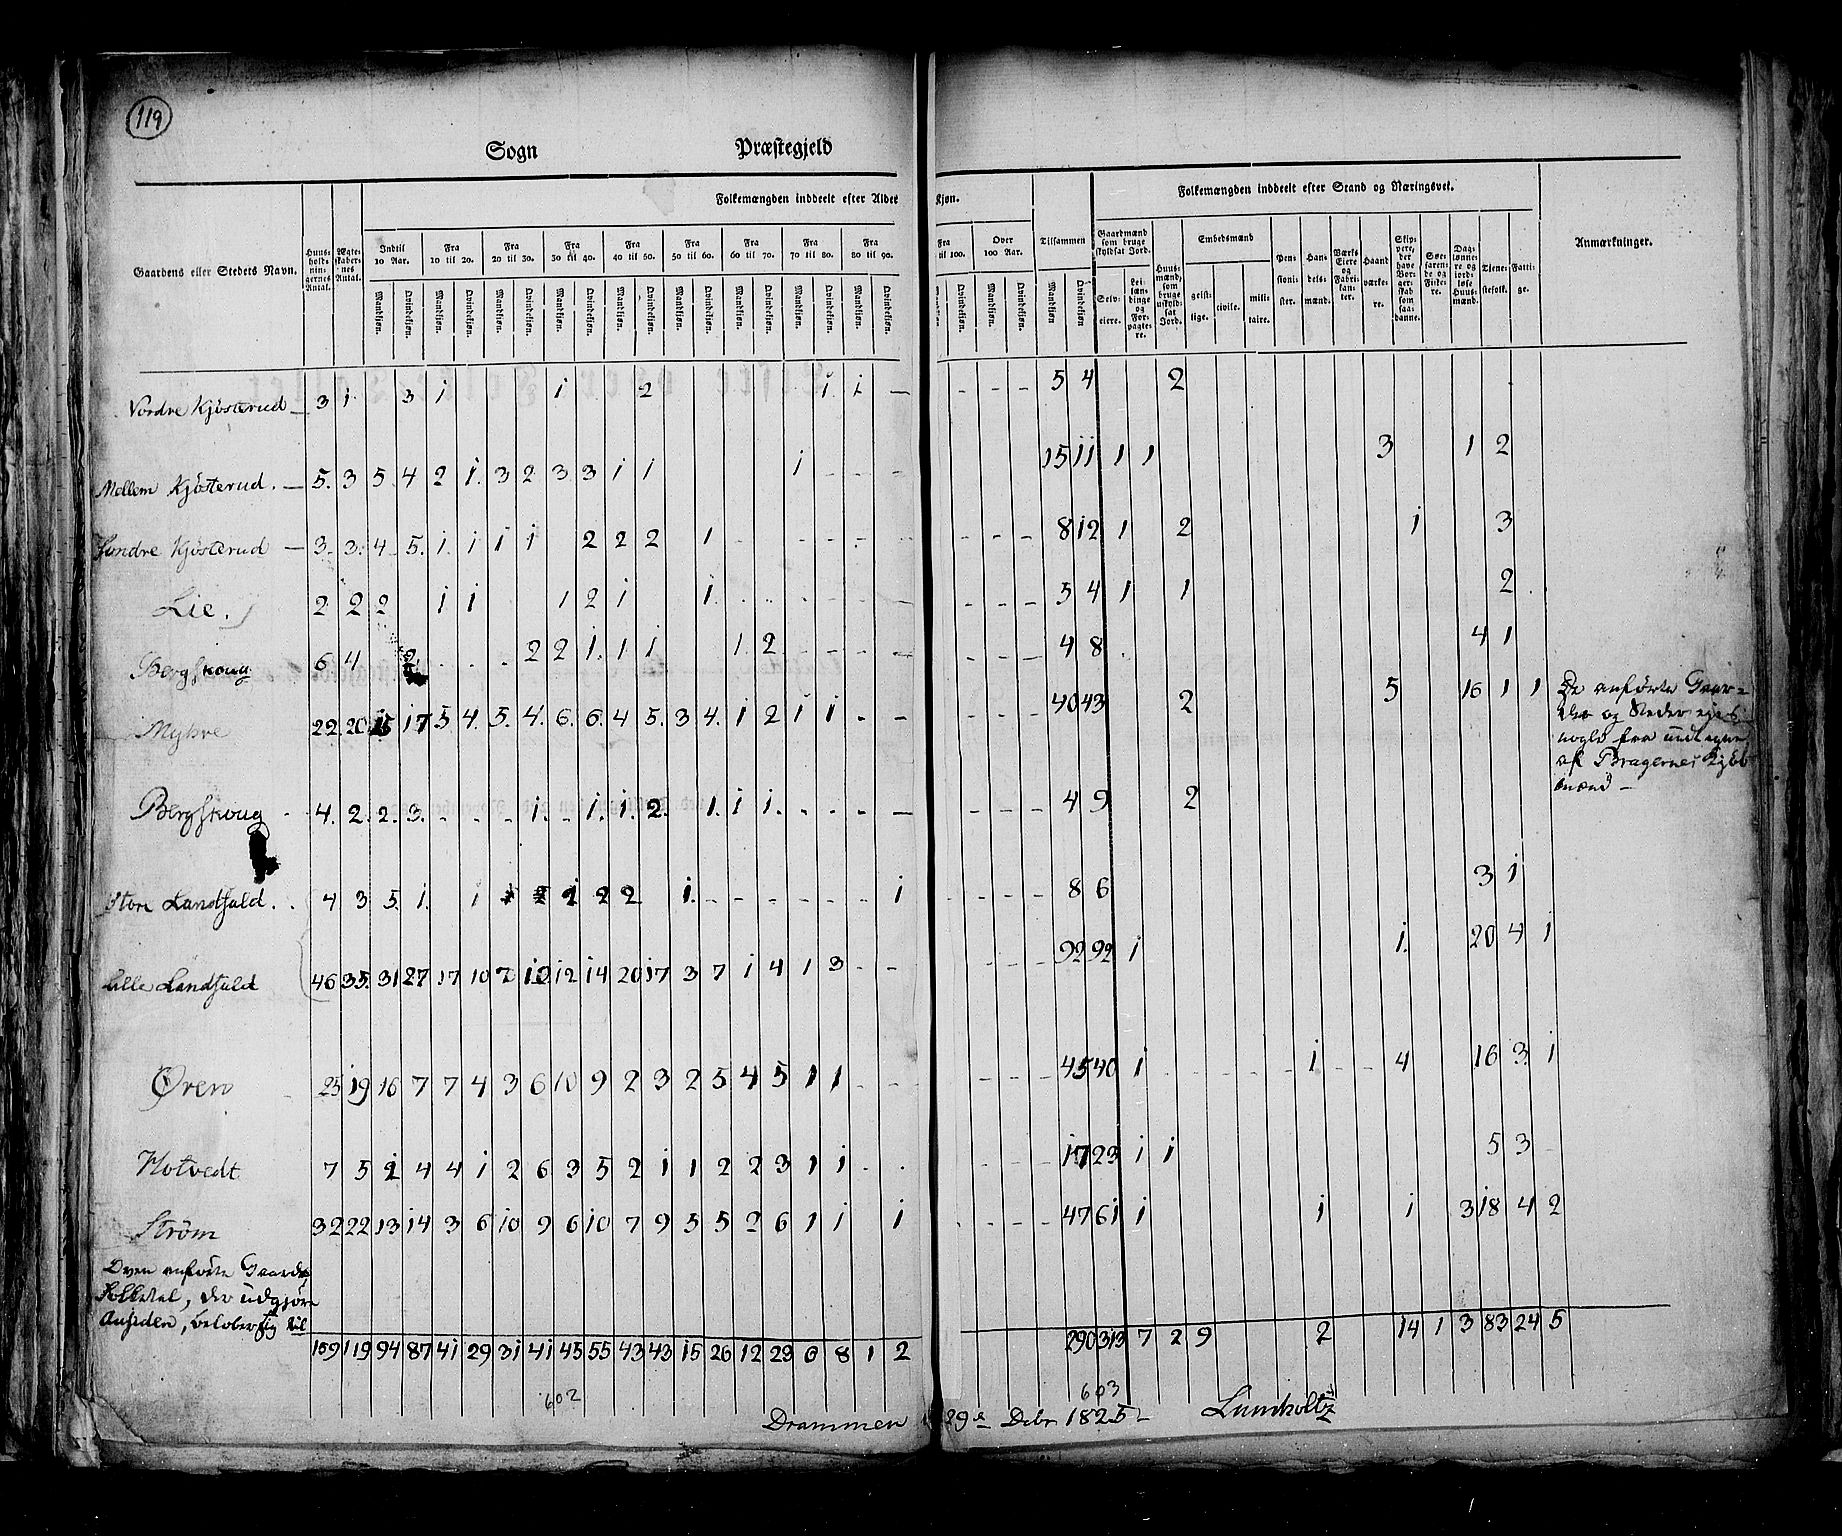 119
Sogn Præstegjeld
Folkemængden inddeelt efter Alder Kjøn. Folkemængden inddeelt efter Stand og Næringsvei.
Gaardens eller Stedets Navn. Huus-holdningernes Antal. Ægteskabernes Antal. Indtil 10 Aar. Fra 10 til 20. Fra 20 til 30. Fra 30 til 40. Fra 40 til 50. Fra 50 til 60. Fra 60 til 70. Fra 70 til 80. Fra 80 til 90. Fra til 100. Over 100 Aar. Tilsammen Gaardmænd som bruge skyldsat Jord. Huusmænd, som bruge uskyldsat Jord. Embedsmænd Pensionister. Handelsmænd. Værks Eiere og Fabrikanter. Haandværkere. Skippere, der have Borgerskab som saadanne. Søefarende og Fiskere. Daglønnere og jordløse Huusmænd. Tjenestefolk. Fattige. Anmærkninger.
Mandkjøn. Qvindekjøn. Selveiere. Leilændinge og Forpagtere. geistlige. civile. militaire.
Nordre Kjösterud 3 1 3 1 1 2 1 1 5 4 2
Mellem Kjösterud. 5. 3 5 4 2 1. 3 2 3 3 1 1 1 15 11 1 1 3 1 2
Søndre Kjösterud 3. 3. 4 5. 1. 1 1 1 2 2 2 1 8 12 1 2 1 3
Lie. 2 2 2 1 1 1 2 1 1. 5 4 1 1 2
Bergskoug 6 4 2. 2 2 1. 1 1 1 2 4 8 4 1
Myhre 22. 20 15 17 5 4. 5. 4. 6. 6. 4 5. 3 4. 1 2 1 1 40 43 2 5 16 1 1
De anførte Gaar-
der og Steder eies
nogle fra undtagne
af Bragernes Kjöb
mænd
Bergskoug 4. 2. 2. 3. 1. 1. 1. 2. 1. 1 1. 4 9 2
Store Landfald. 4 3 5. 1. 1 2 2 2 1. 1 8 6 3 1
Lille Landfald 46 35. 31 27 17 10 7 12 12 14 20 17 3 7 1 4 1 3 92 92 1 1. 20 4 1
Øren 25 19 16 7 7 4 3 6 10 9 2 3 2 5 4 5 1 1 45 40 1 1 4 16 3 1
Hotvedt 7 5 2 4 4 1 2 6 3 5 2 1 1 2 2 3 1 1 17 23 1 1 5 3
Ström 32 22 13 14 3 6 10 9 6 10 7 9 5 5 2 6 1 1 1 47 61 1 1 1 3 18 4 2
Oven anförte Gaarde,
Folketal, der udgjöre
Ansiden, beløber sig til
159 119 94 87 41 29 31 41 45 55 43 43 15 26 12 23 6 8 1 2 290 313 7 2 9 2 14 1 3 83 24 5
602 603
Drammen 29e Debr 1825 Lumholtz